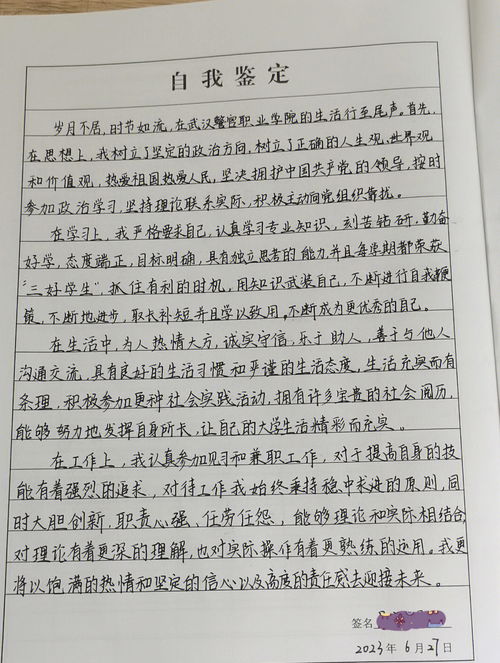 自我鉴定
岁月不居,时节如流,在武汉警官职业学院的生活行至尾声。首先,
在思想上,我树立了坚定的政治方向,树立了正确的人生观、世界观
和价值观,热爱祖国热爱人民,坚决拥护中国共产党的领导,按时
参加政治学习,坚持理论联系实际,积极主动向党组织靠拢。
在学习上,我严格要求自己,认真学习专业知识,刻苦钻研,勤奋
好学,态度端正,目标明确,具有独立思考的能力,并且每学期都荣获
“三好学生”,抓住有利的时机,用知识武装自己,不断进行自我鞭
策,不断地进步,取长补短并且学以致用。不断成为更优秀的自己。
在生活中,为人热情大方,诚实守信,乐于助人,善于与他人
沟通交流,具有良好的生活习惯和严谨的生活态度,生活充实而有
条理,积极参加各种社会实践活动,拥有许多宝贵的社会阅历,
能够努力地发挥自身所长,让自己的大学生活精彩而充实。
在工作上,我认真参加见习和兼职工作,对于提高自身的技
能有着强烈的追求,对待工作我始终秉持稳中求进的原则,同
时大胆创新,职责心强、任劳任怨,能够理论和实际相结合,
对理论有着更深的理解,也对实际操作有着更熟练的运用。我更
将以饱满的热情和坚定的信心以及高度的责任感去迎接未来。
签名
2023年6月27日